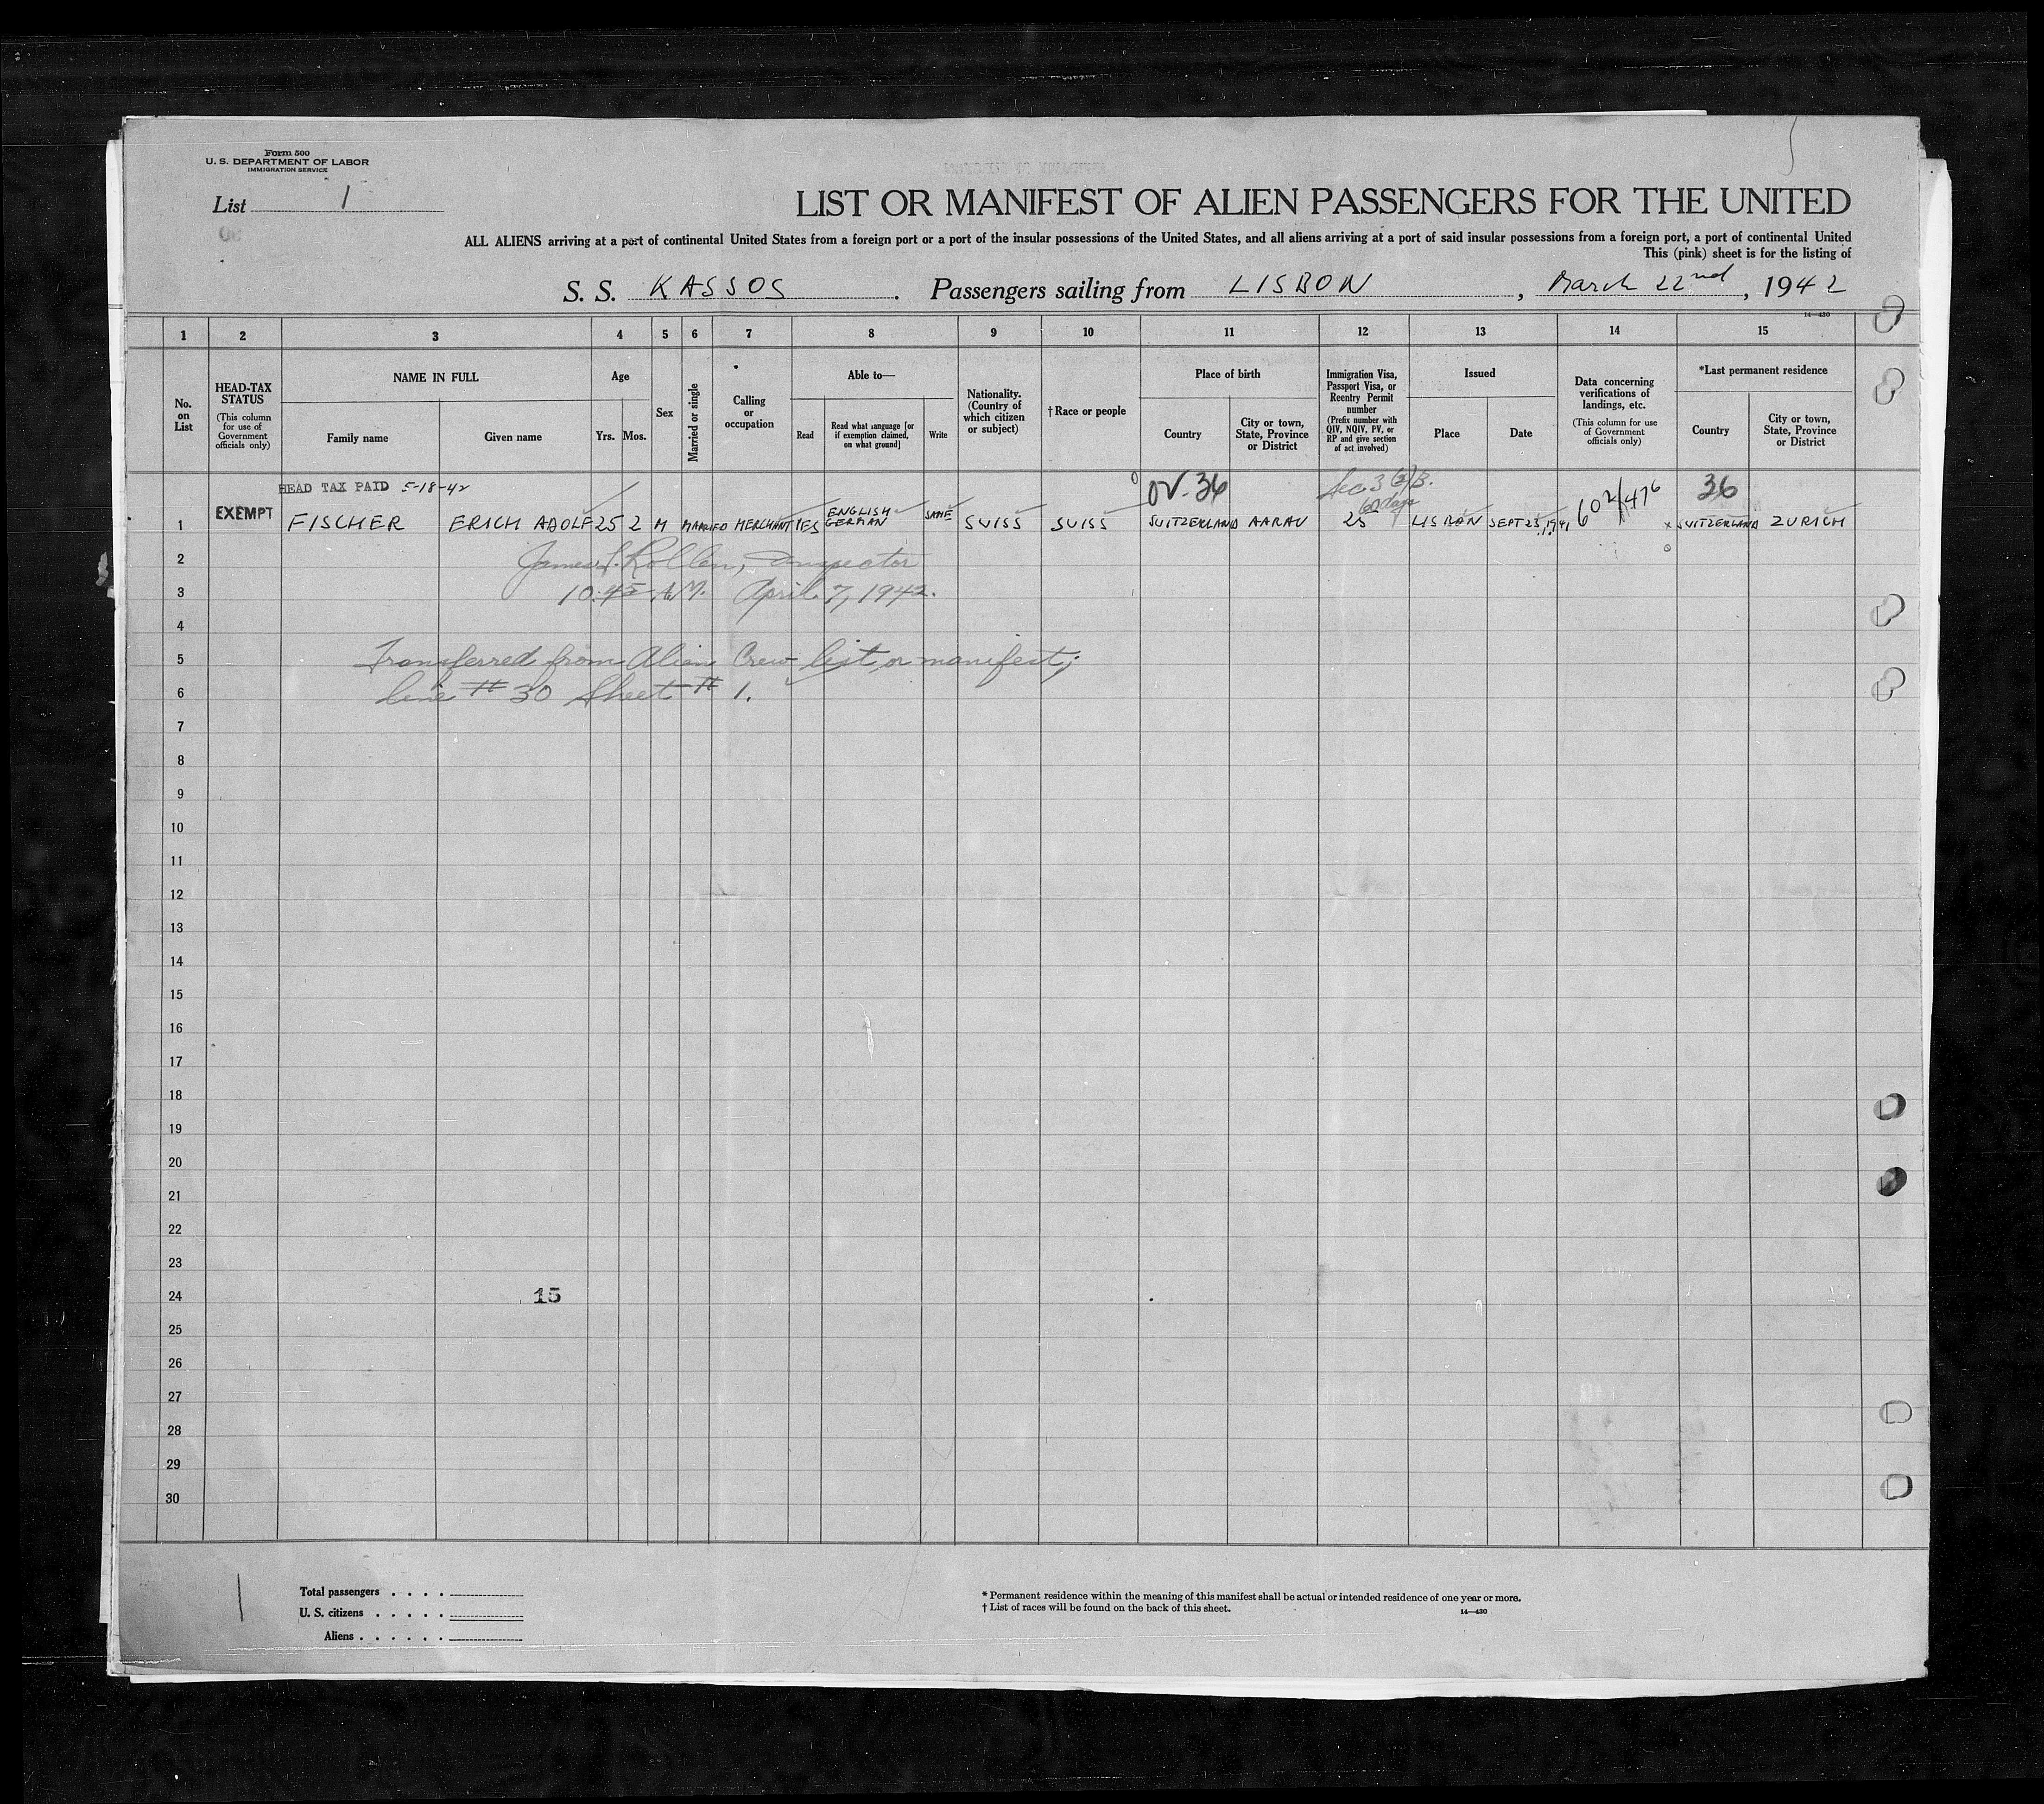 Form 500
U. S. DEPARTMENT OF LABOR
IMMIGRATION SERVICE
List 1
LIST OR MANIFEST OF ALIEN PASSENGERS FOR THE UNITED
ALL ALIENS arriving at a port of continental United States from a foreign port or a port of the insular possessions of the United States, and all aliens arriving at a port of said insular possessions from a foreign port, a port of continental United
This (pink) sheet is for the listing of
S. S. KASSOS. Passengers sailing from LISBON, March 22nd, 1942
14—430
1 2 3 4 5 6 7 8 9 10 11 12 13 14 15
No. on List
HEAD-TAX STATUS
(This column for use of Government officials only)
NAME IN FULL
Family name
Given name
Age
Yrs. Mos.
Sex
Married or single
Calling or occupation
Able to—
Read
Read what language [or if exemption claimed, on what ground]
Write
Nationality. (Country of which citizen or subject)
† Race or people
Place of birth
Country
City or town, State, Province or District
Immigration Visa, Passport Visa, or Reentry Permit number
(Prefix number with QIV, NQIV, PV, or RP and give section of act involved)
Issued
Place
Date
Data concerning verifications of landings, etc.
(This column for use of Government officials only)
*Last permanent residence
Country
City or town, State, Province or District
HEAD TAX PAID 5-18-42
OV. 36
Sec 3 (2) B.
60 days
36
1 EXEMPT FISCHER ERICH ADOLF 25 2 M MARRIED MERCHANT YES ENGLISH GERMAN SAME SUISS SUISS SUITZERLAND AARAU 25 LISBON SEPT 23, 1941 602/476 x SUITZERLAND ZURICH
2 James Rollen, Inspector
3 10:45 A.M. April 7, 1942.
4
5 Transferred from Alien Crew list or manifest;
6 line # 30 Sheet # 1.
7
8
9
10
11
12
13
14
15
16
17
18
19
20
21
22
23
24 15
25
26
27
28
29
30
1
Total passengers . . . .
U. S. citizens . . . . .
Aliens . . . . . .
* Permanent residence within the meaning of this manifest shall be actual or intended residence of one year or more.
† List of races will be found on the back of this sheet.
14—430